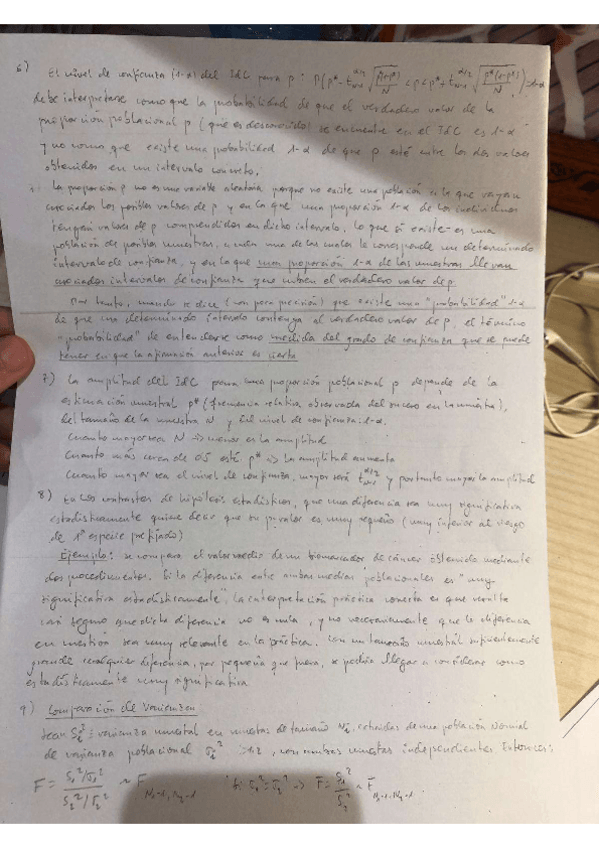 6) El nivel de confianza (1-α) del IdC para p : P(p* - t_{N-1}^{α/2} √(p*(1-p*)/N) ≤ p ≤ p* + t_{N-1}^{α/2} √(p*(1-p*)/N)) = 1-α
debe interpretarse como que la probabilidad de que el verdadero valor de la
proporción poblacional p (que es desconocido) se encuentre en el IdC es 1-α
y no como que existe una probabilidad 1-α de que p esté entre los dos valores
obtenidos en un intervalo concreto.
La proporción p no es una variable aleatoria porque no existe una población en la que vayan
asociados los posibles valores de p y en la que una proporción 1-α de los individuos
tengan valores de p comprendidos en dicho intervalo, lo que sí existe es una
población de posibles muestras, a cada una de las cuales le corresponde un determinado
intervalo de confianza, y en la que una proporción 1-α de las muestras llevan
asociados intervalos de confianza que cubren el verdadero valor de p.
Por tanto, cuando se dice (con poca precisión) que existe una "probabilidad" 1-α
de que un determinado intervalo contenga al verdadero valor de p, el término
"probabilidad" de entenderse como medida del grado de confianza que se puede
tener en que la afirmación anterior es cierta
7) La amplitud del IdC para una proporción poblacional p depende de la
estimación muestral p* (frecuencia relativa observada del suceso en la muestra),
del tamaño de la muestra N y del nivel de confianza 1-α.
Cuanto mayor sea N => menor es la amplitud
Cuanto más cerca de 0.5 esté p* => la amplitud aumenta
Cuanto mayor sea el nivel de confianza, mayor será t_{N-1}^{α/2} y por tanto mayor la amplitud
8) En los contrastes de hipótesis estadísticos, que una diferencia sea muy significativa
estadísticamente quiere decir que su p-valor es muy pequeño (muy inferior al riesgo
de 1ª especie prefijado)
Ejemplo: se compara el valor medio de un biomarcador de cáncer obtenido mediante
dos procedimientos. Si la diferencia entre ambas medias poblacionales es "muy
significativa estadísticamente", la interpretación práctica correcta es que resulta
casi seguro que dicha diferencia no es nula, y no necesariamente que la diferencia
en cuestión sea muy relevante en la práctica. Con un tamaño muestral suficientemente
grande cualquier diferencia, por pequeña que fuera, se podría llegar a considerar como
estadísticamente muy significativa.
9) Comparación de Varianzas
Sean S_i²: varianza muestral en muestras de tamaño N_i, extraídas de una población Normal
de varianza poblacional σ_i², con ambas muestras independientes. Entonces:
F = (S₁²/σ₁²)/(S₂²/σ₂²) ~ F_{N₁-1, N₂-1} Si σ₁²=σ₂² => F = S₁²/S₂² ~ F_{N₁-1, N₂-1}